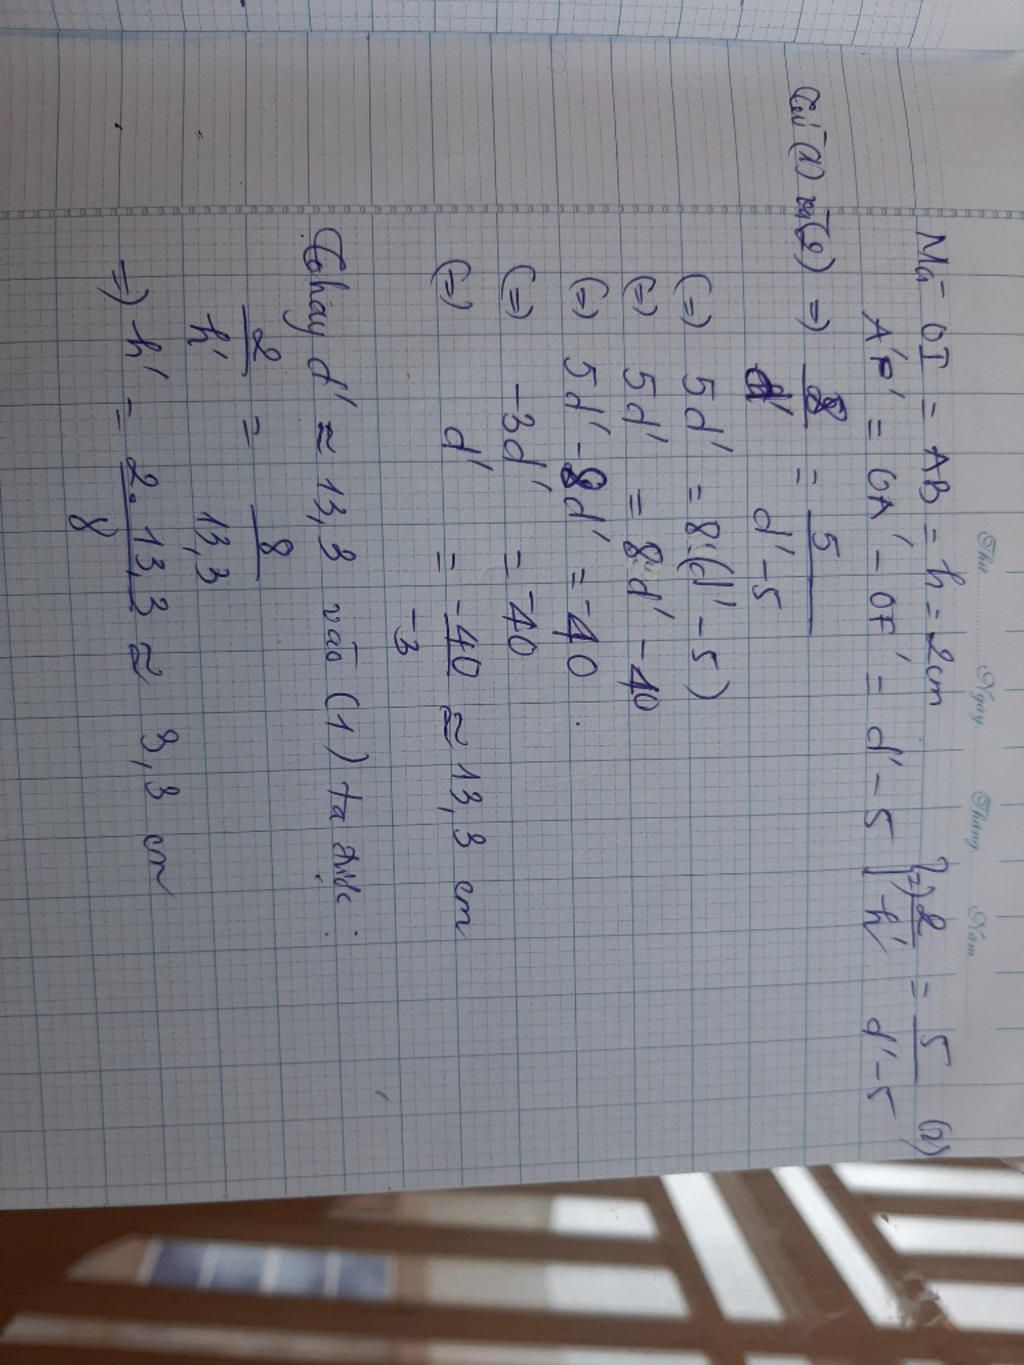 Thứ Ngày Tháng Năm
Mà OI = AB = h = 2cm
A'F' = OA' - OF' = d' - 5 } (=) 2/h' = 5/(d'-5) (2)
Từ (1) và (2) => 8/d' = 5/(d'-5)
(=) 5d' = 8.(d' - 5)
(=) 5d' = 8d' - 40
(=) 5d' - 8d' = -40
(=) -3d' = -40
(=) d' = -40/-3 ≈ 13,3 cm
Thay d' ≈ 13,3 vào (1) ta được:
2/h' = 8/13,3
=) h' = 2.13,3/8 ≈ 3,3 cm